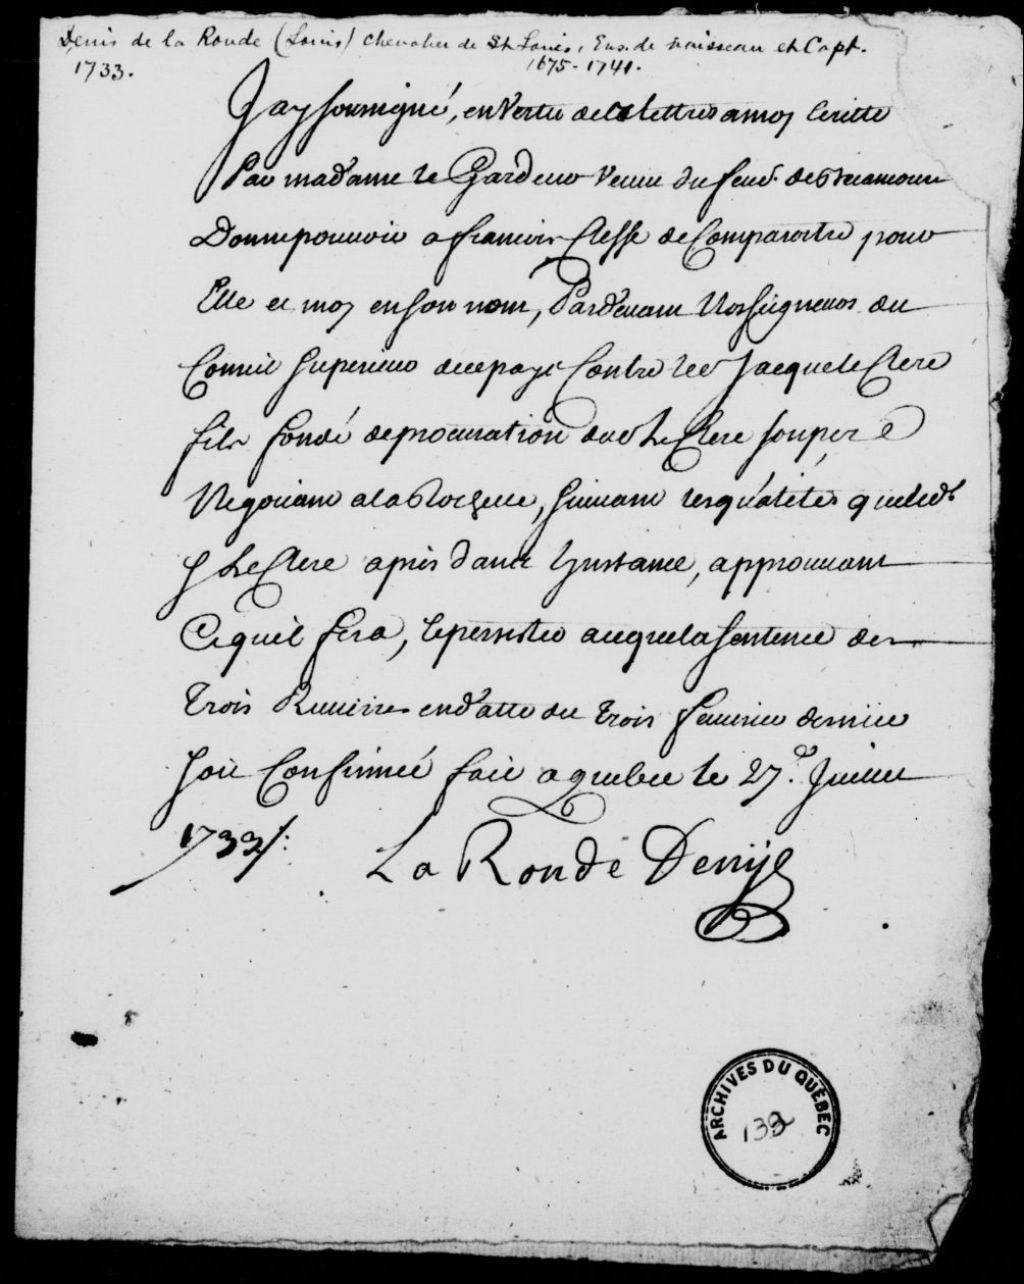 Denis de la Ronde (Louis) chevalier de St Louis, Ens. de vaisseau et Capt.
1733.
1675-1741.
Jay soussigné, en Vertu de la lettre a moy Ecritte
Par madame le Gardeur Veuve du feu Sr. de
Donne pouvoir a francois Clesse de Comparoitre pour
Elle et moy en son nom, Pardevant Nosseigneurs du
Conseil Superieur de ce pays Contre le Sr Jacque le Clerc
fils fondé de procuration du Sr Le Clerc son pere
Negotiant a la Rochelle, suivant les qualités que led.
S Le Clerc a pris dans Linstance, approuvant
Ce quil fera, Et persister a ce que la sentence des
Trois Rivieres en datte du trois fevrier dernier
soit Confirmée fait a quebec le 27.e Juillet
1733/.
La Ronde Denys
ARCHIVES DU QUÉBEC
132